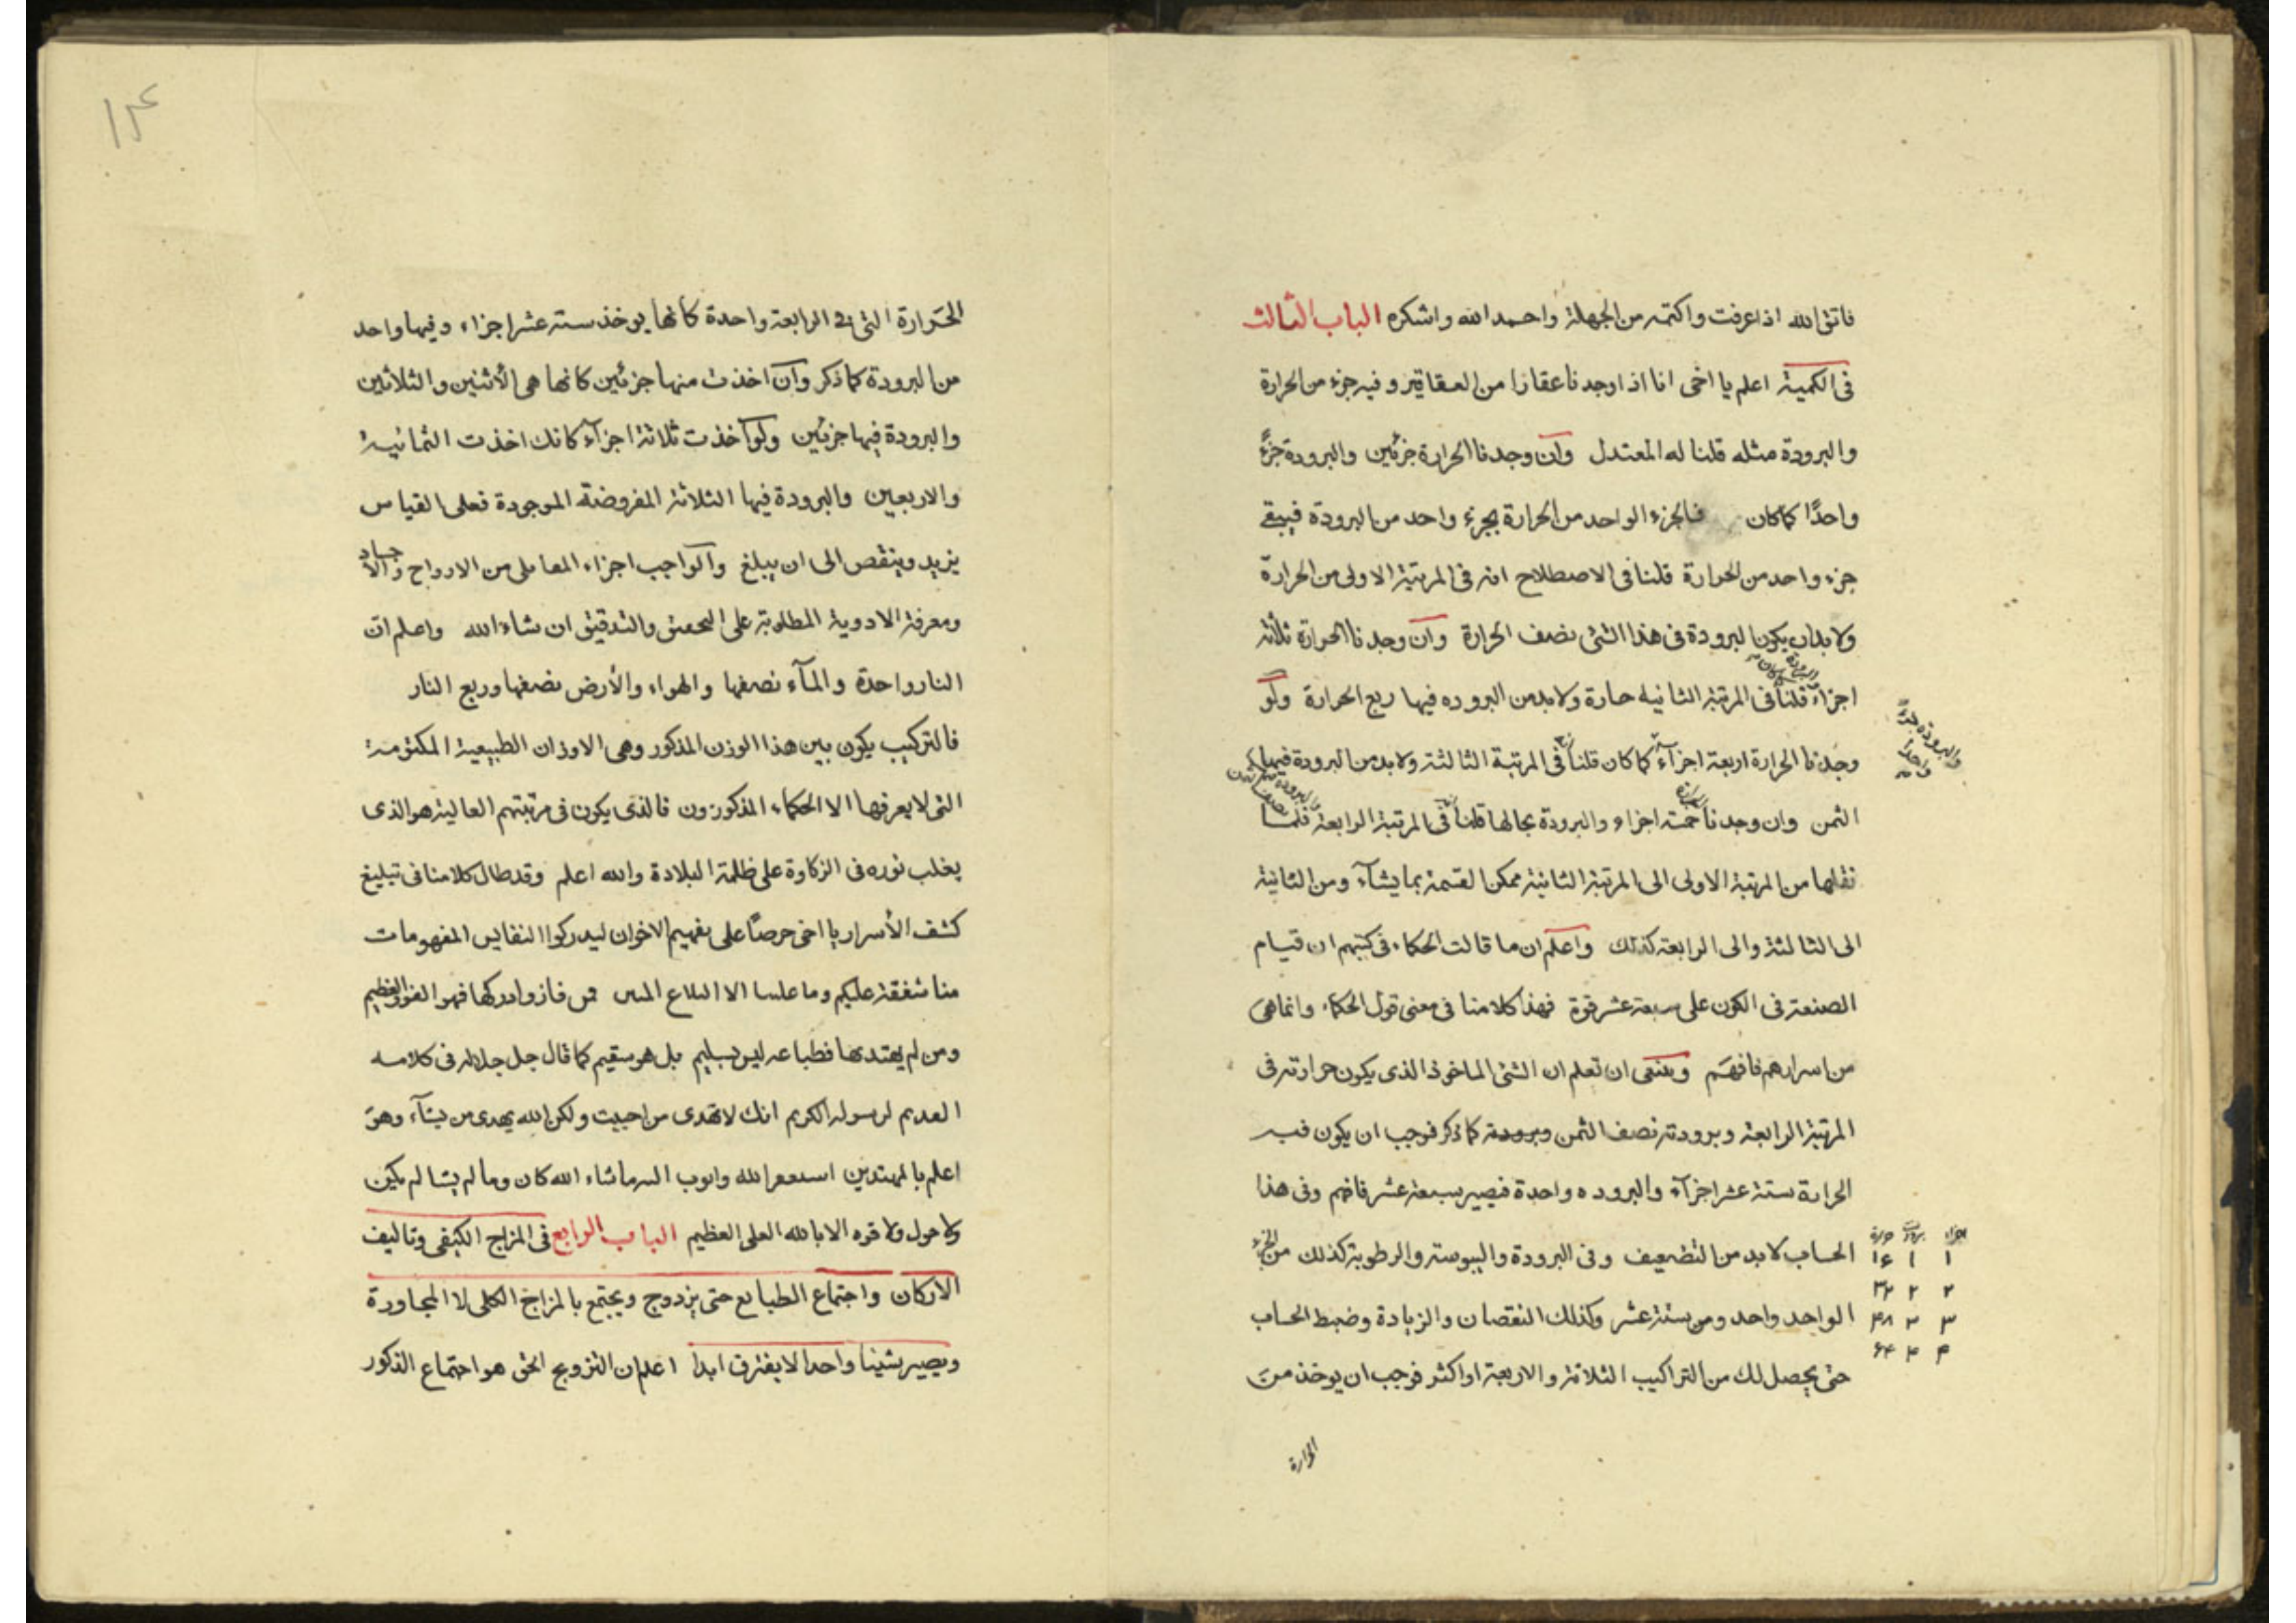 فاتق الله اذا عرفت واكتمه من الجهلة واحمد الله واشكره الباب الثالث
فى الكمية اعلم يا اخى انا اذا وجدنا عقارا من العقاقير وفيه جزء من الحرارة
والبرودة مثله قلنا له المعتدل وان وجدنا الحرارة جزئين والبرودة جزءً
واحدًا كما كان فالجزء الواحد من الحرارة بجزء واحد من البرودة فيبقى
جزء واحد من الحرارة قلنا فى الاصطلاح انه فى المرتبة الاولى من الحرارة
ولا بد ان يكون البرودة فى هذا الشئ نصف الحرارة وان وجدنا الحرارة ثلاثة
والبرودة كما كان
اجزاء قلنا فى المرتبة الثانيه حارة ولا بد من البروده فيها ربع الحرارة ولو
والبرودة جزءً واحدا
وجدنا الحرارة اربعة اجزآء كما كان قلنا فى المرتبة الثالثة ولا بد من البرودة فيها
الثمن وان وجدنا الحرارة خمسة اجزاء والبرودة بحالها قلنا فى المرتبة الرابعة فلما
نقلها من المرتبة الاولى الى المرتبة الثانية ممكن القسمة بما يشآء ومن الثانية
الى الثالثة والى الرابعة كذلك واعلم ان ما قالت الحكماء فى كتبهم ان قيام
الصنعة فى الكون على سبعة عشر قوة فهذا كلامنا فى معنى قول الحكماء وانما هى
من اسرارهم فافهم وينبغى ان تعلم ان الشئ الماخوذ الذى يكون حرارته فى
المرتبة الرابعة وبرودته نصف الثمن وبرودة كما ذكر فوجب ان يكون فيه
الحرارة ستة عشر اجزآء والبروده واحدة فيصير سبعة عشر فافهم وفى هذا
اجزاء برودة حرارة
١ ١ ١٦
٢ ٢ ٣٢
٣ ٣ ٤٨
٤ ٤ ٦٤
الحساب لا بد من التضعيف وفى البرودة واليبوسة والرطوبة كذلك من الجزء
الواحد واحد ومن ستة عشر وكذلك النقصان والزيادة وضبط الحساب
حتى يحصل لك من التراكيب الثلاثة والاربعة او اكثر فوجب ان يوخذ من
الحرارة
١٣٤
الحرارة التى فى الرابعة واحدة كانها يوخذ ستة عشر اجزاء وفيها واحد
من البرودة كما ذكر وان اخذت منها جزئين كانها هى الاثنين والثلاثين
والبرودة فيها جزئين ولو اخذت ثلاثة اجزآء كانك اخذت الثمانية
والاربعين والبرودة فيها الثلاثة المفروضة الموجودة فعلى القياس
يزيد وينقص الى ان يبلغ والواجب اجزاء المعامل من الارواح والاجساد
ومعرفة الادوية المطلوبة على التحقيق والتدقيق ان شاء الله واعلم ان
النار واحدة والمآء نصفها والهواء والأرض نصفها وربع النار
فالتركيب يكون بين هذا الوزن المذكور وهى الاوزان الطبيعية المكتومة
التى لا يعرفها الا الحكماء المذكورون فالذى يكون فى مرتبتهم العالية هو الذى
يغلب نوره فى الزكاوة على ظلمة البلادة والله اعلم وقد طال كلامنا فى تبليغ
كشف الأسرار يا اخى حرصًا على تفهيم الاخوان ليدركوا النفايس المفهومات
منا شفقة عليكم وما علينا الا البلاغ المبين فمن فاز وادركها فهو الفوز العظيم
ومن لم يهتد بها فطباعه ليس بسليم بل هو سقيم كما قال جل جلاله فى كلامه
القديم لرسوله الكريم انك لا تهدى من احببت ولكن الله يهدى من يشآء وهو
اعلم بالمهتدين استغفر الله واتوب اليه ما شاء الله كان وما لم يشا لم يكن
ولا حول ولا قوه الا بالله العلى العظيم الباب الرابع فى المزاج الكيفى وتاليف
الاركان واجتماع الطبايع حتى يزدوج ويجتمع بالمزاج الكلى لا المجاورة
ويصير شيئا واحدا لا يفترق ابدا اعلم ان التزويج الحق هو اجتماع الذكور